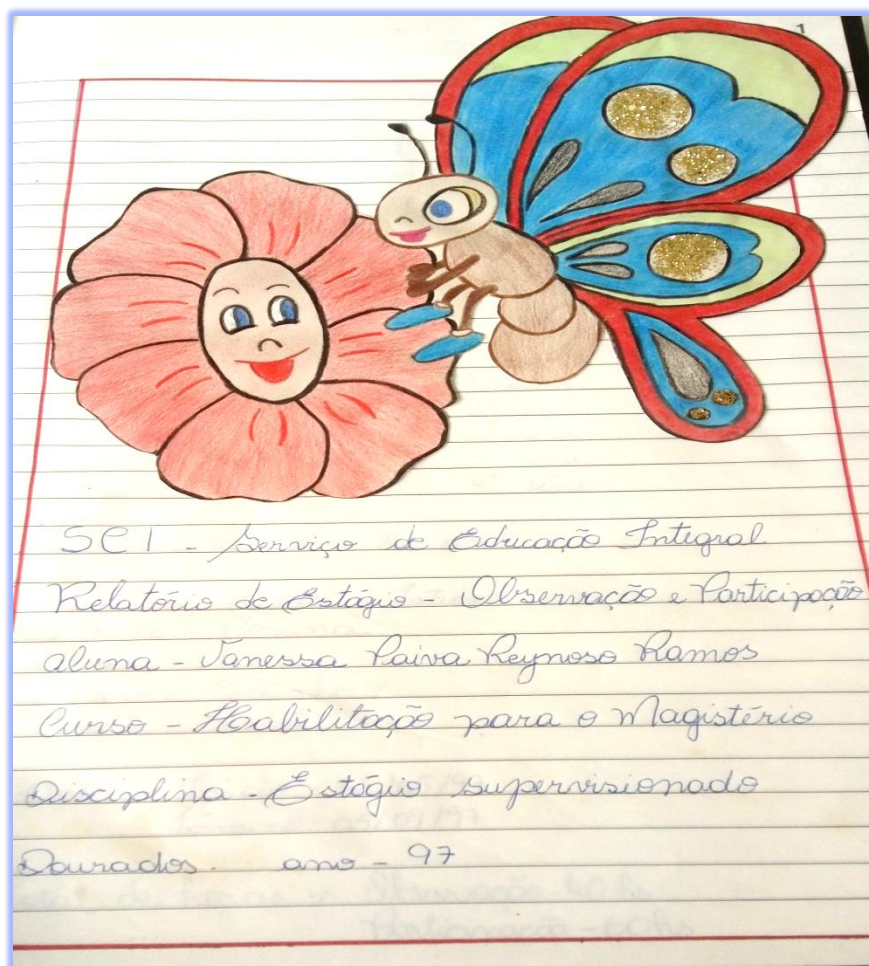 1
SEI - Serviço de Educação Integral
Relatório de Estágio - Observação e Participação
aluna - Vanessa Paiva Reynoso Ramos
Curso - Habilitação para o Magistério
Disciplina - Estágio supervisionado
Dourados. ano - 97